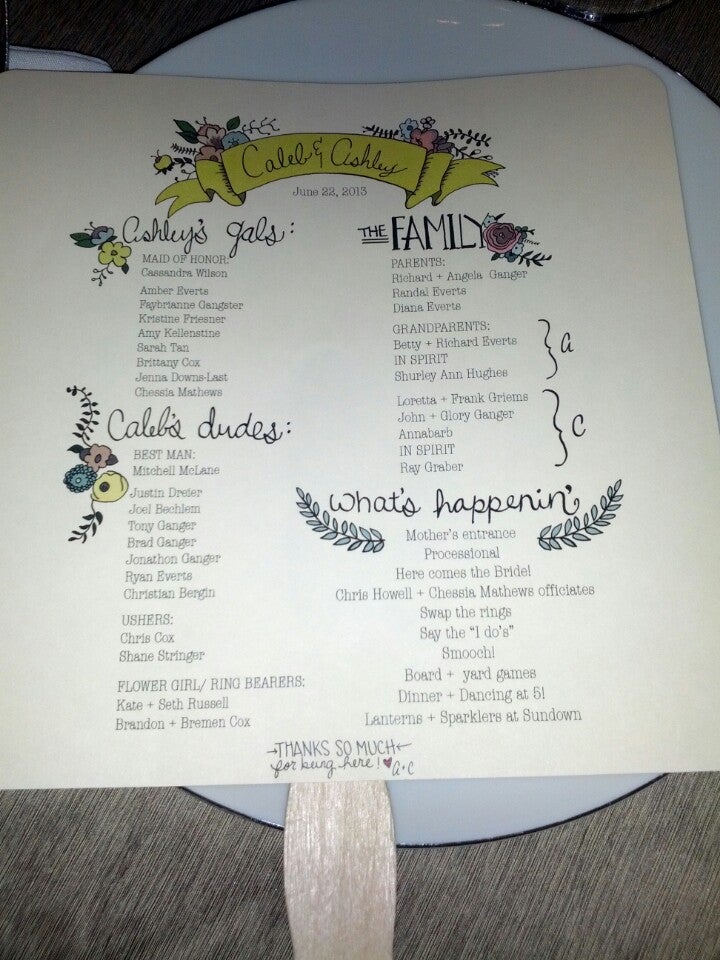 Caleb & Ashley
June 22, 2013
Ashley's gals:
MAID OF HONOR:
Cassandra Wilson
Amber Everts
Faybrianne Gangster
Kristine Friesner
Amy Kellenstine
Sarah Tan
Brittany Cox
Jenna Downs-Last
Chessia Mathews
Caleb's dudes:
BEST MAN:
Mitchell McLane
Justin Dreier
Joel Bechlem
Tony Ganger
Brad Ganger
Jonathon Ganger
Ryan Everts
Christian Bergin
USHERS:
Chris Cox
Shane Stringer
FLOWER GIRL/ RING BEARERS:
Kate + Seth Russell
Brandon + Bremen Cox
THE FAMILY
PARENTS:
Richard + Angela Ganger
Randal Everts
Diana Everts
GRANDPARENTS:
Betty + Richard Everts
IN SPIRIT
Shurley Ann Hughes
a
Loretta + Frank Griems
John + Glory Ganger
Annabarb
IN SPIRIT
Ray Graber
C
what's happenin'
Mother's entrance
Processional
Here comes the Bride!
Chris Howell + Chessia Mathews officiates
Swap the rings
Say the "I do's"
Smooch!
Board + yard games
Dinner + Dancing at 5!
Lanterns + Sparklers at Sundown
→THANKS SO MUCH←
for being here! ♥ a+C